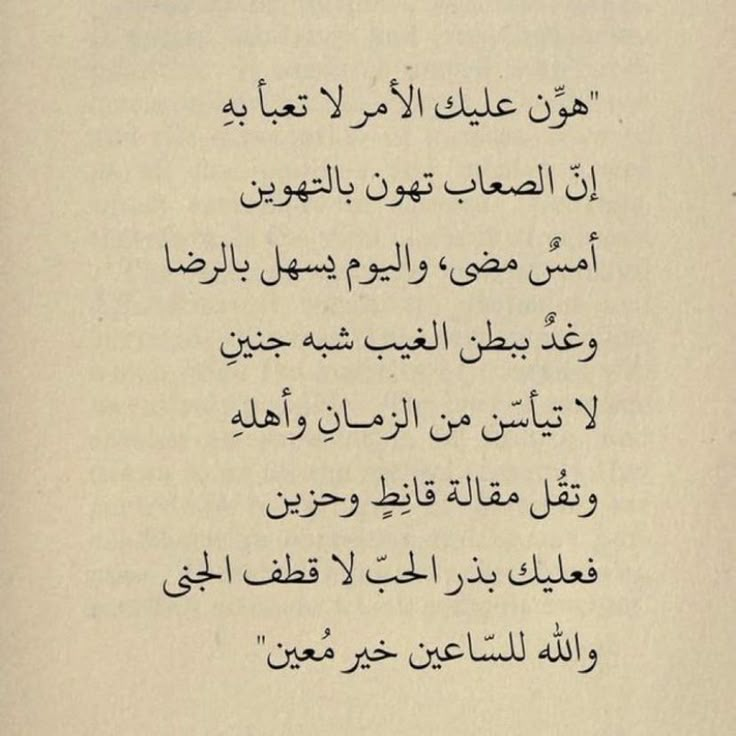 "هوِّن عليك الأمر لا تعبأ بهِ
إنّ الصعاب تهون بالتهوين
أمسٌ مضى، واليوم يسهل بالرضا
وغدٌ ببطن الغيب شبه جنينِ
لا تيأسّن من الزمـانِ وأهلهِ
وتقُل مقالة قانِطٍ وحزين
فعليك بذر الحبّ لا قطف الجنى
والله للسّاعين خير مُعين"